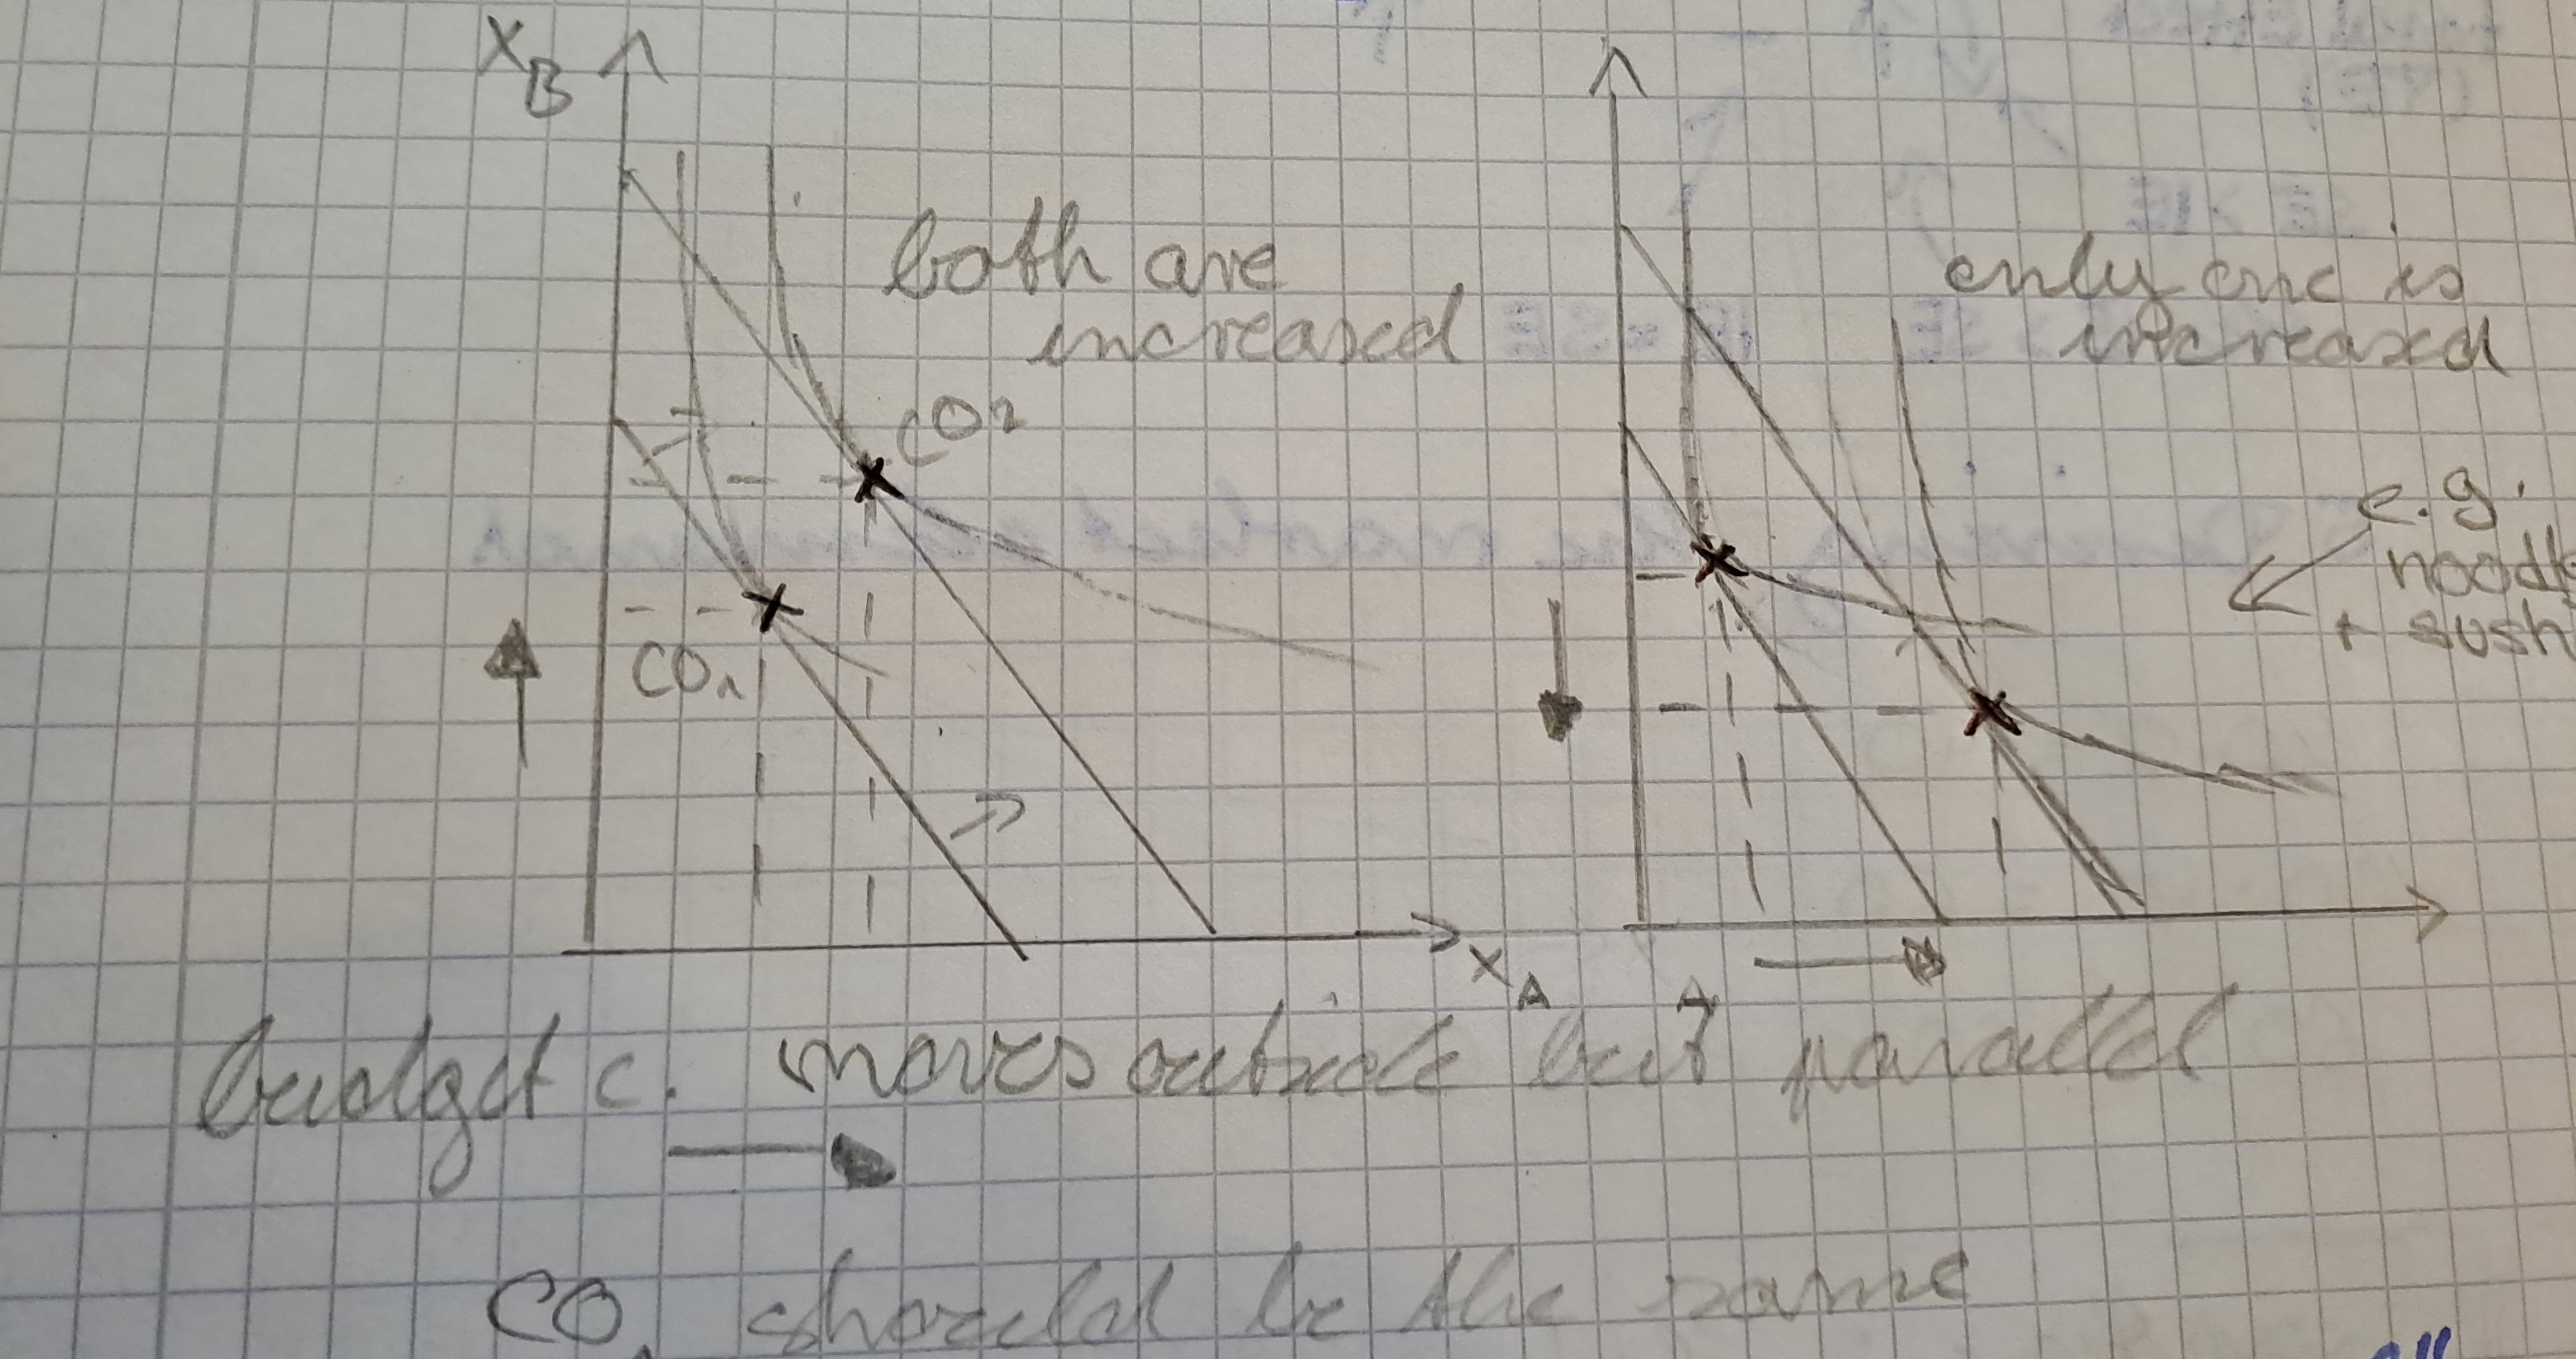 x_B
both are
increased
CO2
CO1
x_A
only one is
increased
e.g.
+ sush
budget c. moves outside but parallel
CO1 should be the same